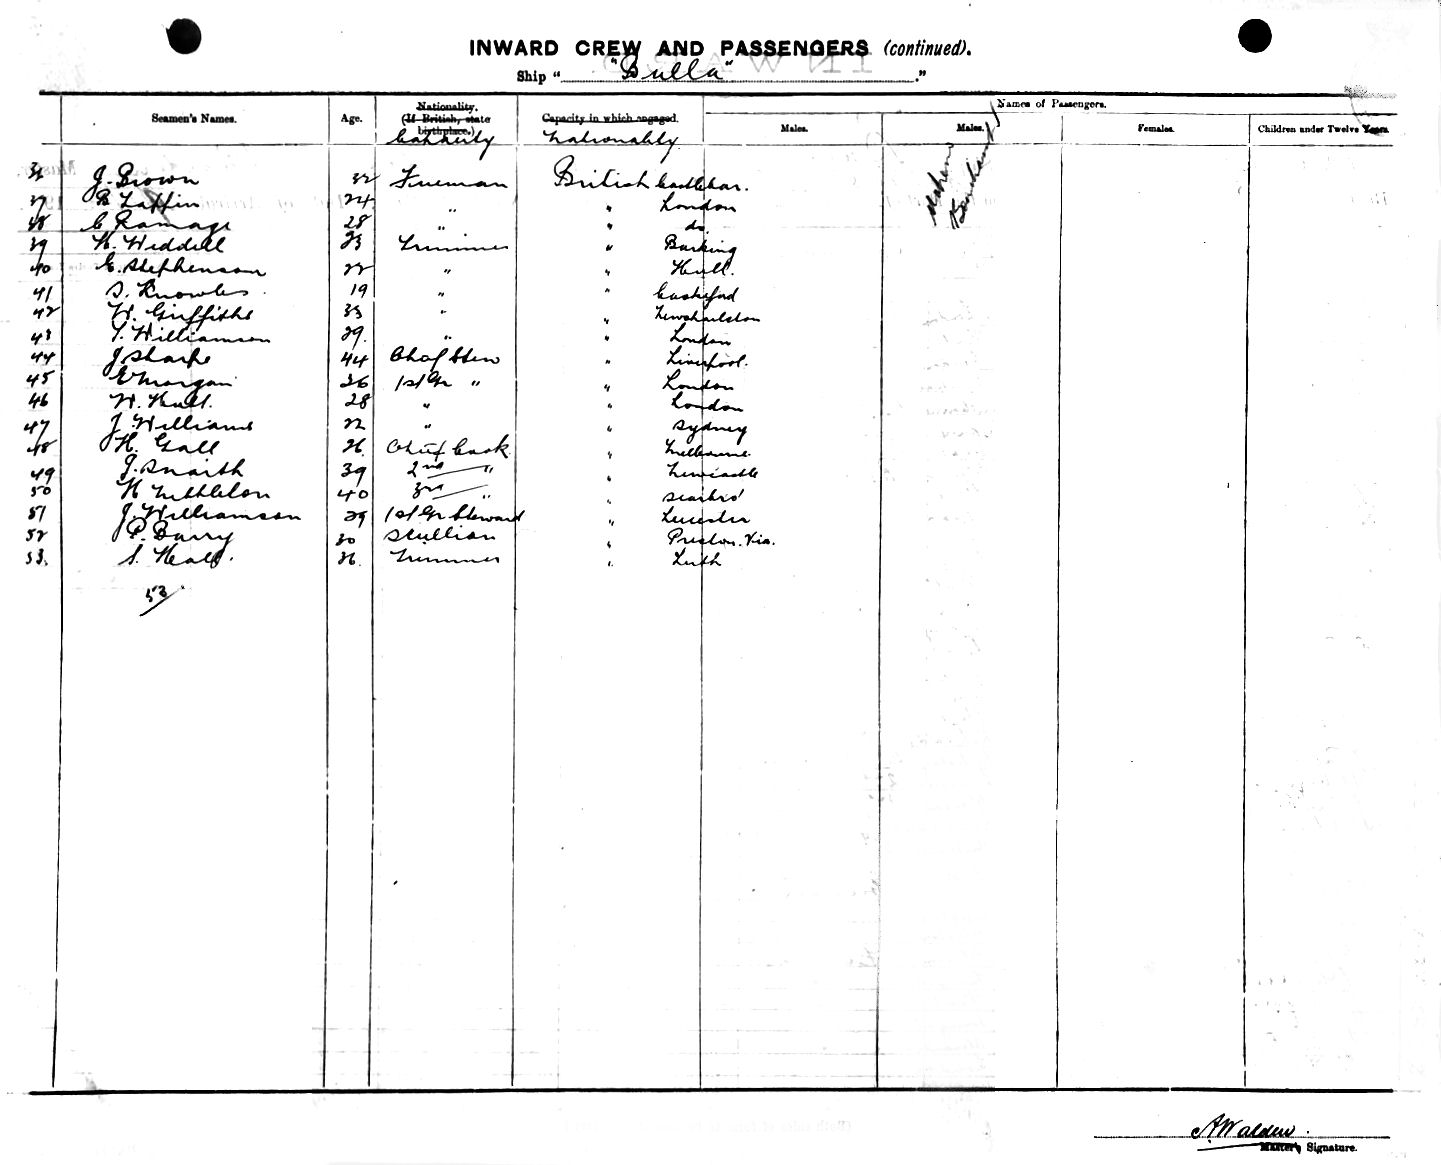 INWARD CREW AND PASSENGERS (continued).
Ship " "Bulla" ."
Seamen's Names. Age. Nationality. (If British, state birthplace.) Capacity in which engaged. Names of Passengers.
Capacity Nationality Males. Males. Females. Children under Twelve Years.
36 J. Brown 32 Fireman British Castlebar.
37 Laffin 24 " " London
38 C Ramage 28 " " do.
39 H. Weddell 23 Trimmer " Barking
40 E. Stephenson 22 " " Hull.
41 S. Knowles 19 " " Castleford
42 W. Griffiths 33 " "
43 T. Williamson 29. " " London
44 J Sharpe 44 Chief Stew " Liverpool.
45 E Morgan 26 1st Gr " " London
46 W. Hull. 28 " " London
47 J Williams 22 " " Sydney
48 H. Gall 26. Chief Cook. " Melbourne.
49 J. Snaith 39 2nd " " Newcastle
50 H Nettleton 40 3rd " " Scarbro'
51 J. Williamson 29 1st Gr Steward " Leicester
52 P. Barry 30 Scullion " Preston. Vic.
53. S. Hall. 26. Trimmer " Leith
53
A Walden
Master's Signature.